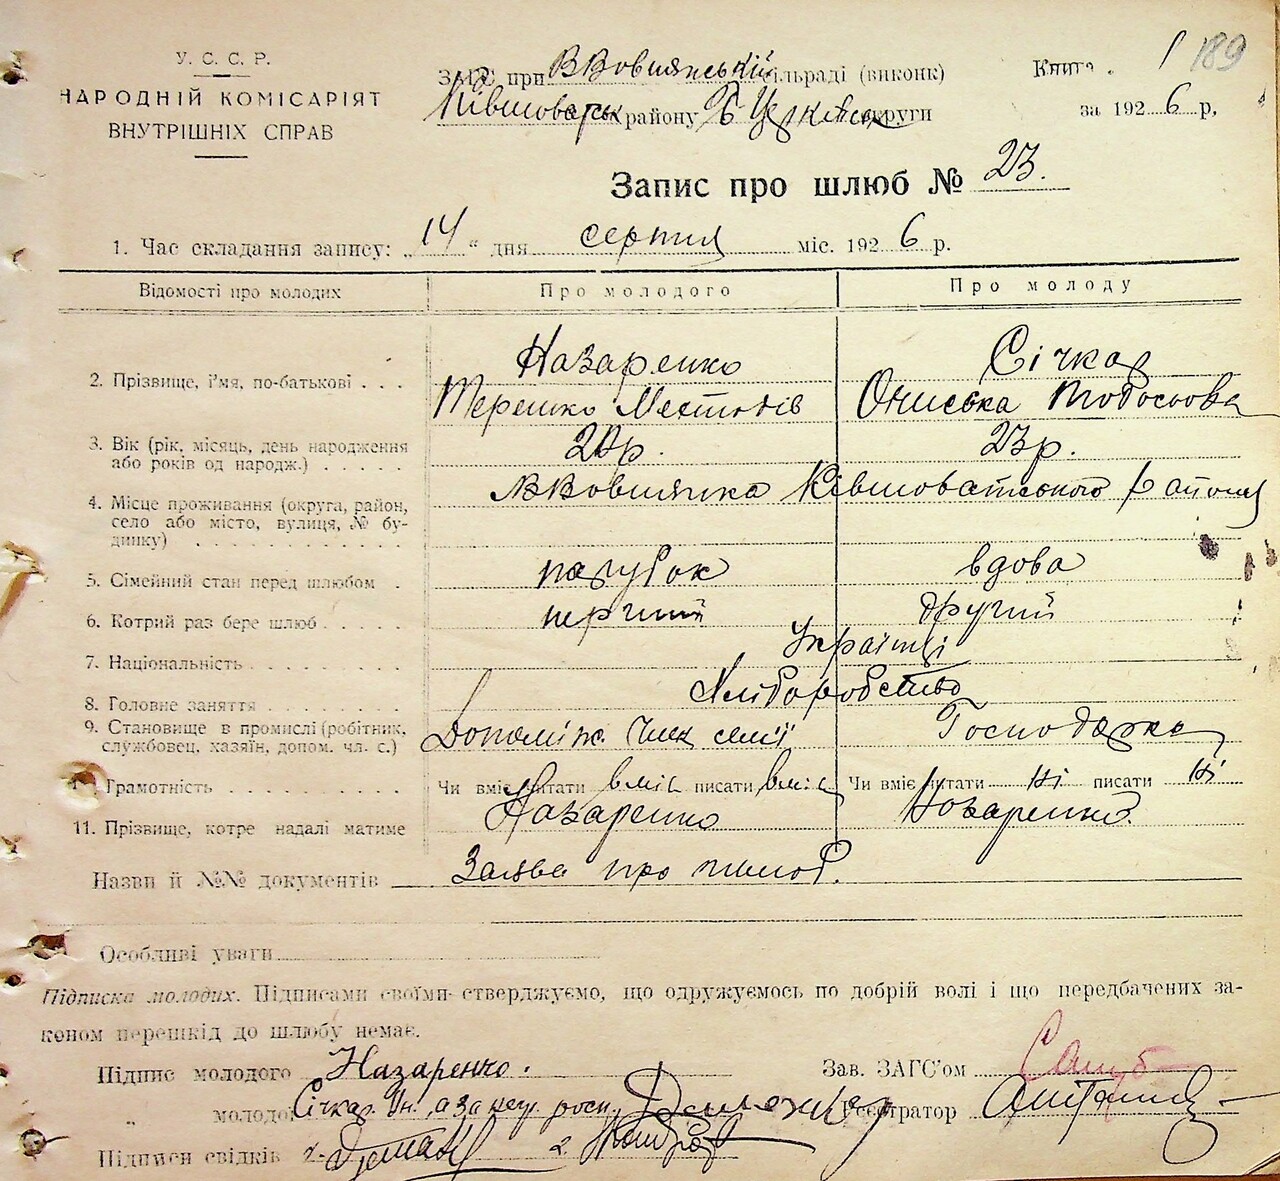 189
У. С. С. Р.
НАРОДНІЙ КОМІСАРІЯТ
ВНУТРІШНІХ СПРАВ
ЗАГС при В Вовнянській сільраді (виконк) Книга 1
Ківшоватськ району Б-Церківськ округи за 1926 р,
Запис про шлюб № 23.
1. Час складання запису: „14" дня серпня міс. 1926 р.
Відомості про молодих Про молодого Про молоду
2. Прізвище, і'мя, по-батькові . . . Назаренко Січкар
Терешко Местодів Ониська Тодоскова
3. Вік (рік, місяць, день народження 20 р. 23 р.
або років од народж.) . . . . .
4. Місце проживання (округа, район, В Вовнянка Ківшоватського району
село або місто, вулиця, № бу-
динку) . . . . . . . . . . . .
5. Сімейний стан перед шлюбом . парубок вдова
6. Котрий раз бере шлюб . . . . . перший другий
7. Національність . . . . . . . . . Українці
8. Головне заняття . . . . . . . . Хліборобство
9. Становище в промислі (робітник, Допоміж. член семї Господарка
службовец, хазяїн, допом. чл. с.)
Грамотність . . . . . . . . . . Чи вміє читати вміє писати вміє Чи вміє читати ні писати ні
11. Прізвище, котре надалі матиме Назаренко Назаренко.
Назви й №№ документів Заява про шлюб.
Особливі уваги
Підписка молодих. Підписами своїми стверджуємо, що одружуємось по добрій волі і що передбачених за-
коном перешкід до шлюбу немає.
Підпис молодого Назаренко. Зав. ЗАГС'ом
„ молодої Січкар Он., а за неї роспи. Реєстратор
Підписи свідків 1. 2.